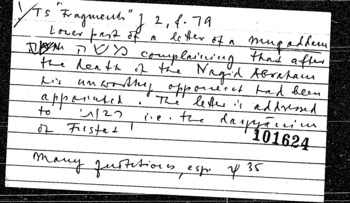 TS "Fragments" J 2, f. 79
Lower part of a letter of a muqaddam
משה complaining that after
the death of the Nagid Abraham
his unworthy opponent had been
appointed. The letter is addressed
to רבותי i.e. the dayyānim
of Fustat
101624
Many quotations, esp. ψ 35